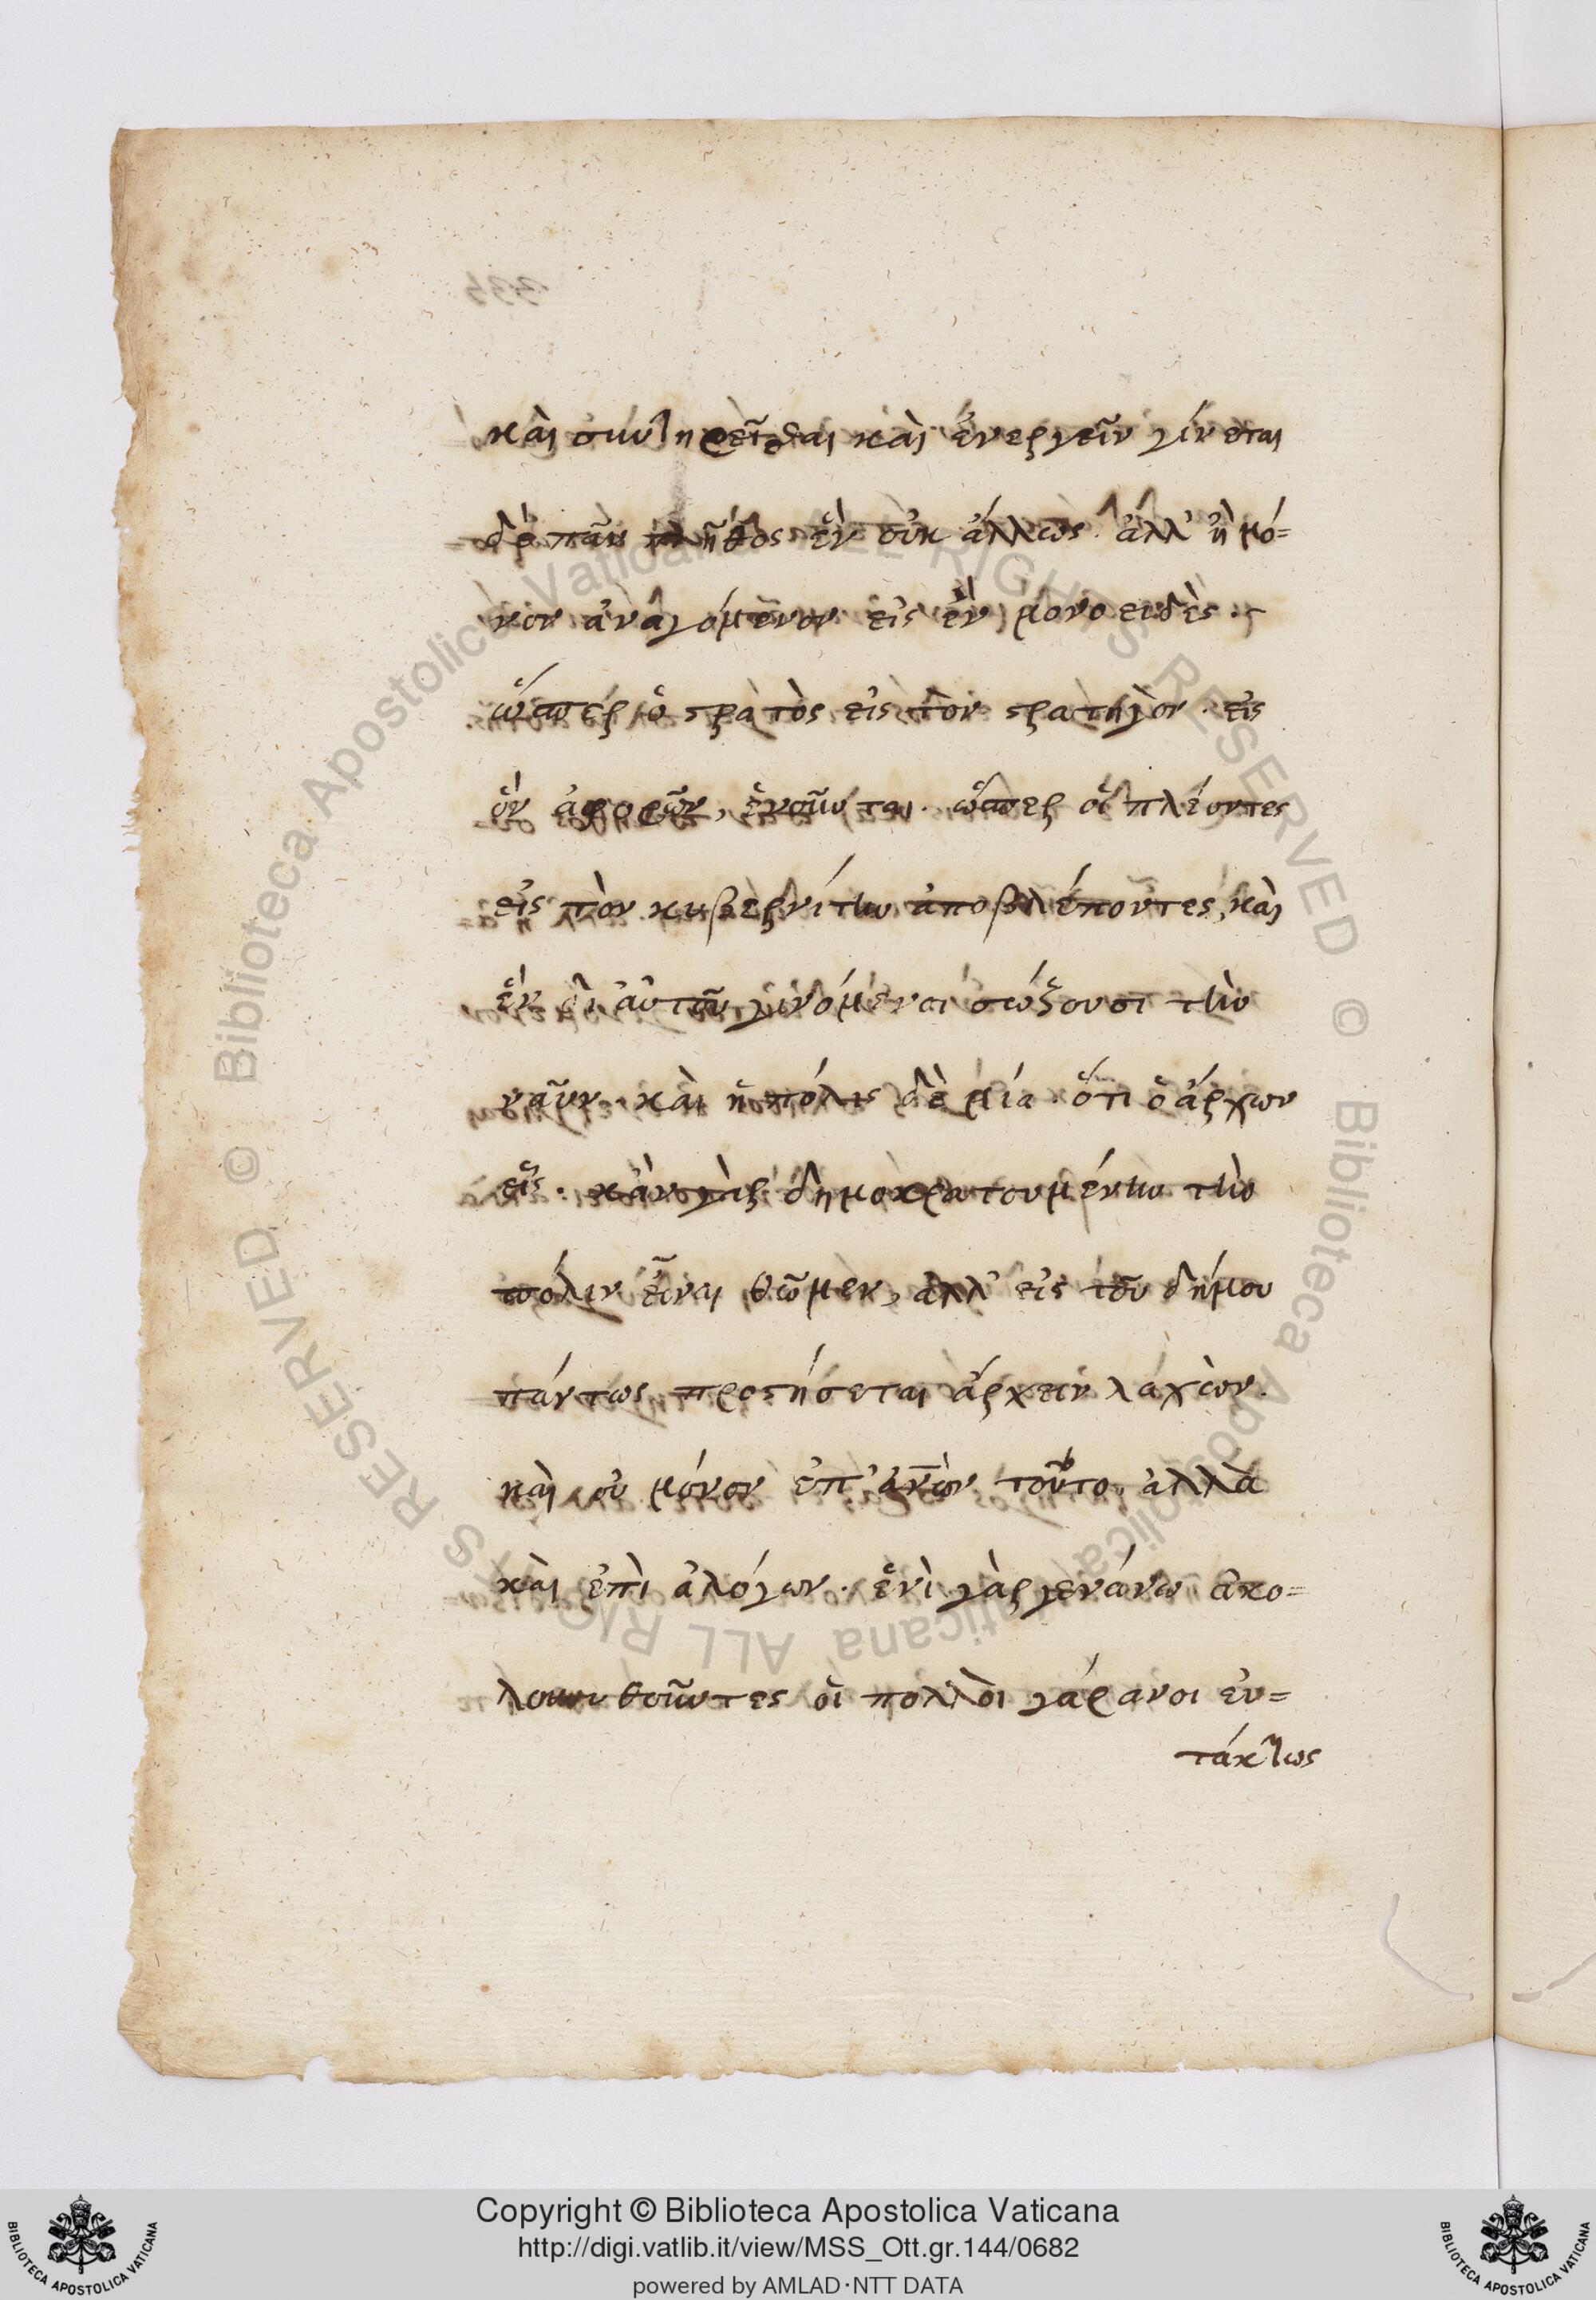 καὶ συντηρεῖσθαι καὶ ἐνεργεῖν γίνεται
δὲ πᾶν πλῆθος ἓν οὐκ ἄλλως. ἀλλ' ἢ μό=
νον ἀναγόμενον εἰς ἓν μονοειδὲς.
ὥσπερ ὁ στρατὸς εἰς τὸν στρατηγὸν. εἰς
ὃν ἀφορῶν, ἑνοῦνται. ὥσπερ οἱ πλέοντες
εἰς τὸν κυβερνίτην ἀποβλέποντες, καὶ
ἓν δι' αὐτοῦ γινόμενοι σώζουσι τὴν
ναῦν. καὶ ἡ πόλις δὲ μία. ὅτι ὁ ἄρχων
εἷς. κἂν γὰρ δημοκρατουμένην τὴν
πόλιν εἶναι θῶμεν, ἀλλ' εἷς τοῦ δήμου
πάντως προστήσεται ἄρχειν λαχὼν.
καὶ οὐ μόνον ἐπ' ἀν̅ων τοῦτο, ἀλλὰ
καὶ ἐπὶ ἀλόγων. ἑνὶ γὰρ γενάνω ἀκο=
λουθοῦντες οἱ πολλοὶ γάρανοι εὐ=
τάκτως
Copyright © Biblioteca Apostolica Vaticana
http://digi.vatlib.it/view/MSS_Ott.gr.144/0682
powered by AMLAD·NTT DATA
BIBLIOTECA APOSTOLICA VATICANA
BIBLIOTECA APOSTOLICA VATICANA
© Biblioteca Apostolica Vaticana ALL RIGHTS RESERVED
© Biblioteca Apostolica Vaticana ALL RIGHTS RESERVED